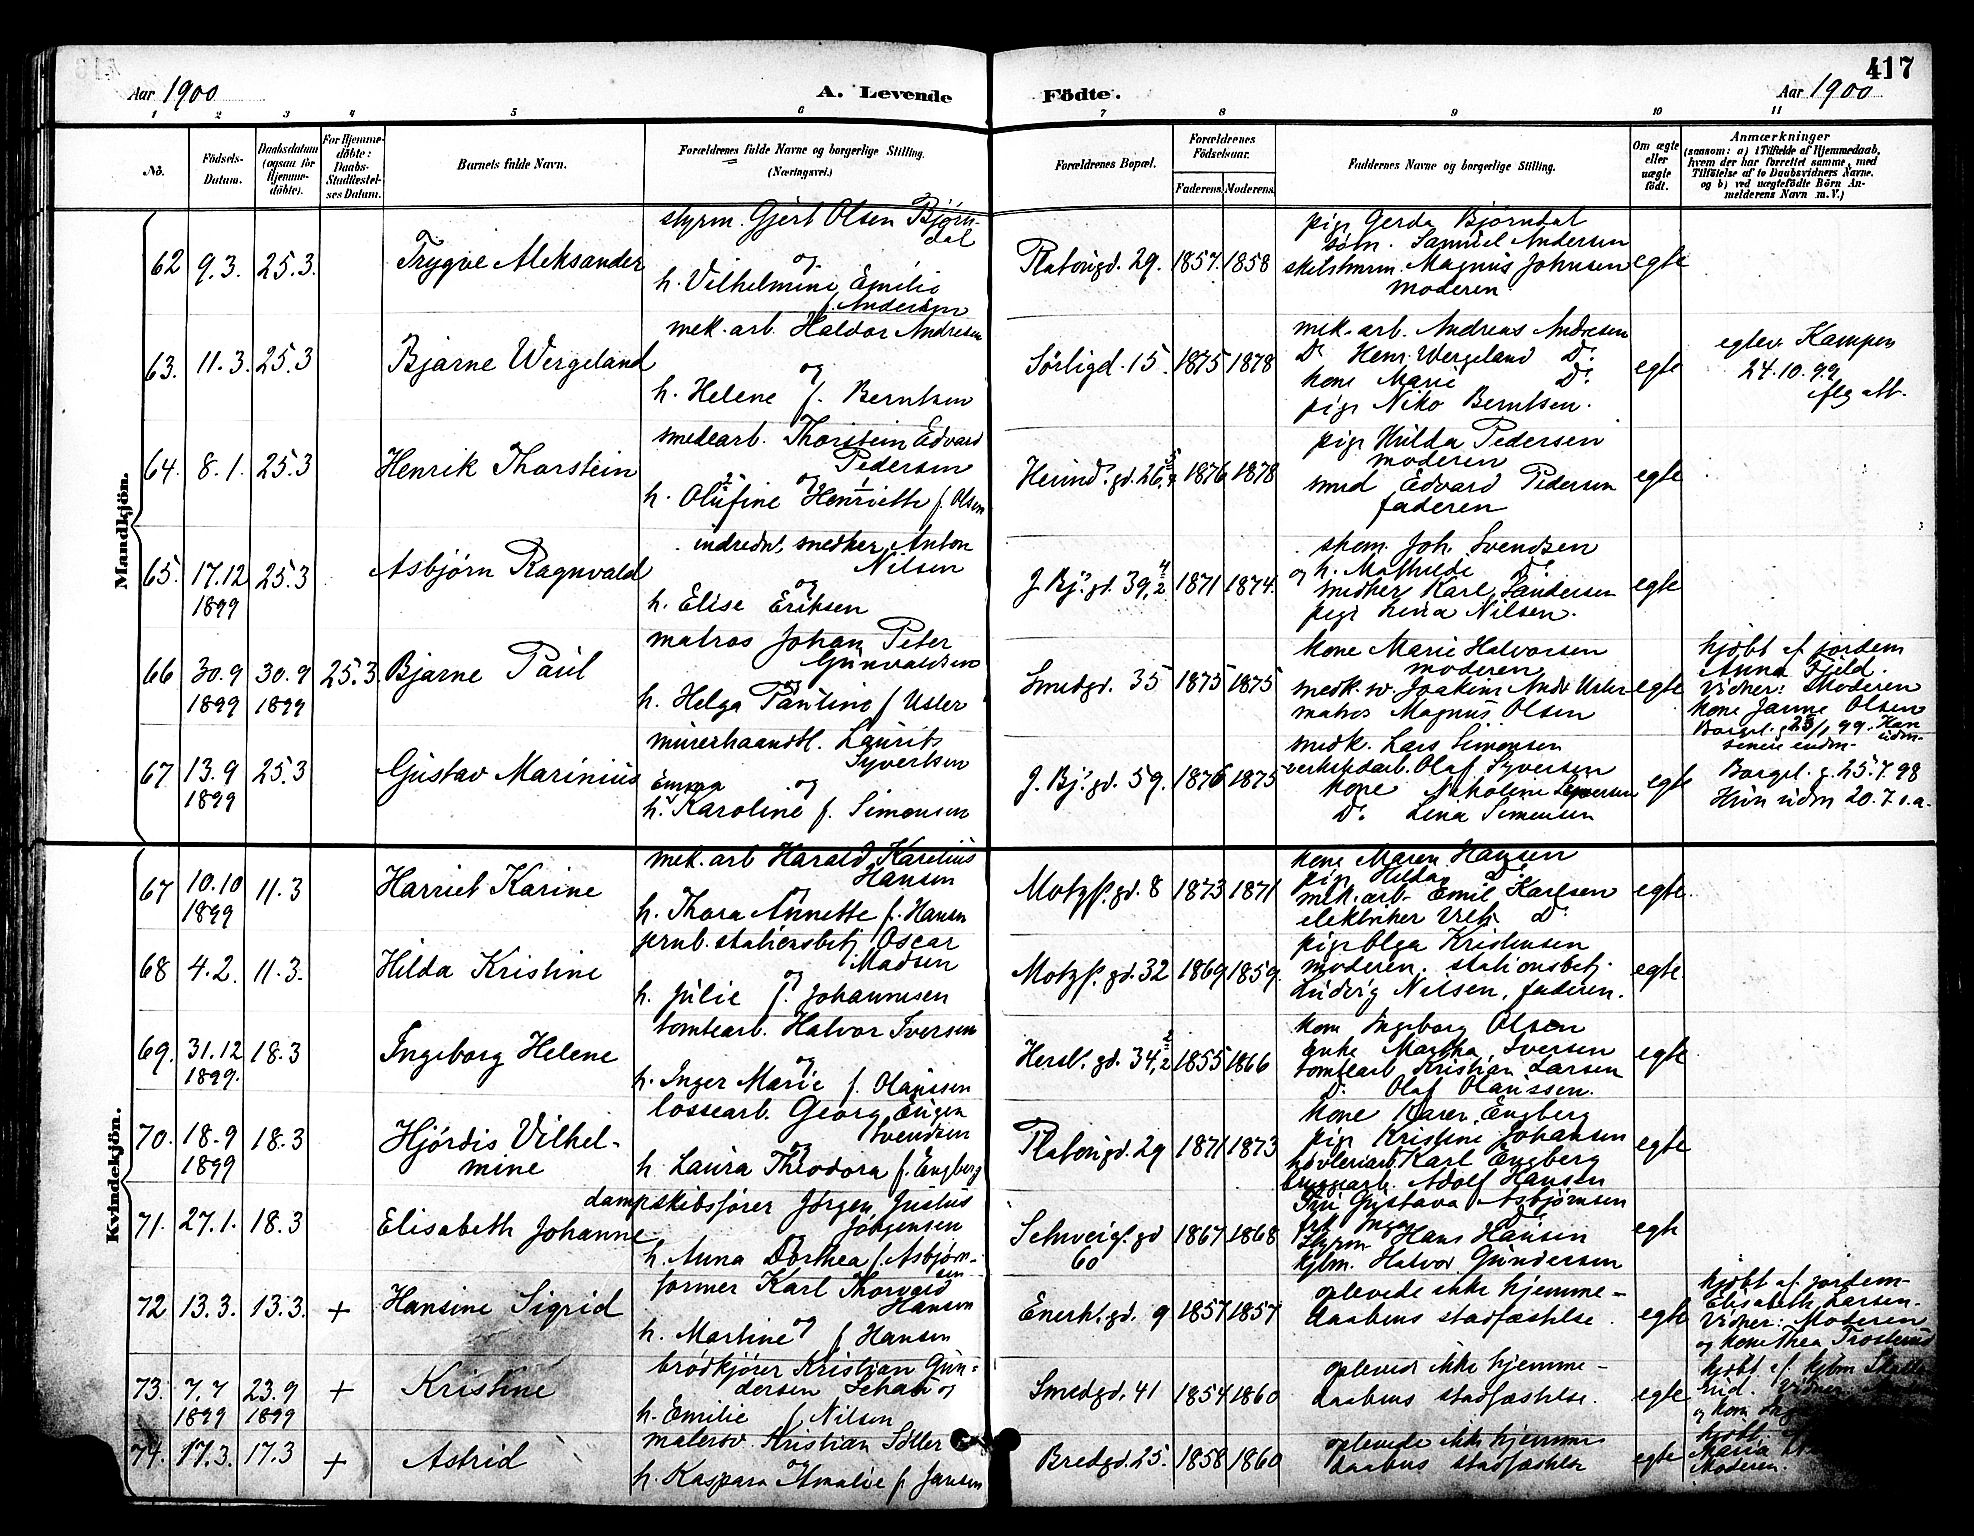 417
Aar 1900
A. Levende Födte.
Aar 1900
1 2 3 4 5 6 7 8 9 10 11
No.
Födsels-
Datum.
Daabsdatum
(ogsaa for
Hjemme-
döbte).
For Hjemme-
döbte:
Daabs-
Stadfæstel-
ses Datum.
Barnets fulde Navn.
Forældrenes fulde Navne og borgerlige Stilling.
(Næringsvei.)
Forældrenes Bopæl.
Forældrenes
Födselsaar.
Faderens. Moderens.
Faddernes Navne og borgerlige Stilling.
Om ægte
eller
uægte
födt.
Anmærkninger
(saasom: a) i Tilfælde af Hjemmedaab,
hvem der har forrettet samme, med
Tilföielse af to Daabsvidners Navne,
og b) ved uægtefödte Börn An-
melderens Navn m. V.)
Mandkjön.
62 9.3. 25.3.
Trygve Aleksander
styrm. Gjert Olsen Bjørn-
dal
og
h. Vilhelmine Emilie
f. Andersen
Platougd. 29. 1857. 1858
pige Gerda Bjørndal
Samuel Andersen
Magnus Johnsen
moderen
egte
63. 11.3. 25.3
Bjarne Wergeland
mek. arb. Haldor Andresen
og
h. Helene f. Berntsen
Sörligd. 15. 1875 1878
mek. arb. Andreas Andresen
Do Henr. Wergeland Do
kone Marie Do
pige Niko Berntsen.
egte
egtev. Kampen
24.10.99
64. 8.1. 25.3
Henrik Thorstein
smedearb. Thorstein Edvard
Pedersen
og
h. Olufine Henriette f. Olsen
1876 1878
pige Hilda Pedersen
moderen
smed Edvard Pedersen
faderen
egte
65. 17.12 25.3
1899
Asbjørn Ragnvald
indredn. snedker Anton
Nilsen
og
h. Elise Eriksen
J. Bj. gd. 39, 1871 1874.
skom. Joh. Svendsen
og h. Mathilde Do
snedker Karl Sandersen
pige Lina Nilsen.
egte
66 30.9 30.9 25.3
1899 1899
Bjarne Paul
matros Johan Peter
Gunvaldsen
og
h. Helga Pauline f. Uster
Smedgd. 35 1875 1875
kone Marie Halvorsen
moderen
Joakim Andr. Uster
matros Magnus Olsen
egte
hjdbt af jordem
Anna Fjeld.
Vidner: Moderen
kone Janne Olsen
67 13.9 25.3
1899
Gustav Marinius
murerhaandtl. Laurits
Syvertsen
Emma og
h. Karoline f. Simonsen
J. Bj. gd. 59. 1876 1875
snedk. Lars Simonsen
verkstedarb. Olaf Syversen
kone Nikoline Syversen
Do Lina Simonsen
egte
Borgel. g. 25.7.98
Hun udm 20.7.s.a.
Kvindekjön.
67 10.10 11.3
1899
Harriet Karine
mek. arb Harald Karelius
Hansen
og
h. Thora Annette f. Hansen
Motzf. gd. 8 1873 1871
kone Maren Hansen
pige Hilda Do
mek. arb. Emil Karlsen
elektriker Do
egte.
68 4.2. 11.3.
Hilda Kristine
jernb. stationsbetj Oscar
Madsen
og
h. Julie f. Johannesen
Motzf. gd. 32 1869 1859.
pige Olga Kristensen
moderen. stationsbetj.
Ludvig Nilsen, faderen.
egte.
69. 31.12 18.3
1899.
Ingeborg Helene
tomtearb. Halvor Iversen
og
h. Inger Marie f. Olaussen
Hersl. gd. 34, 1855 1866
kone Ingeborg Olsen
Enke Martha Iversen
tomtearb Kristian Larsen
Do Olaf Olaussen.
egte
70. 18.9 18.3
1899
Hjördis Vilhel-
mine
lossearb. Georg Eugen
Svendsen
og
h. Laura Theodora f. Engberg
Platougd. 29 1871 1873
kone Karen Engberg
pige Kristine Johansen
høvleriarb Karl Engberg
bryggearb. Adolf Hansen
egte
71. 27.1. 18.3
Elisabeth Johanne
dampskibsfører Jørgen Justus
Jörgensen
og
h. Anna Dorthea f. Asbjørn-
sen
Schweig. gd
60 1867 1868
Fru Gustava Asbjørnsen
frk Inga Do
Styrm Hans Hansen
kjbm. Halvor Gundersen
egte
72 13.3. 13.3. +
Hansine Sigrid
former Karl Thorvald
Hansen
og
h. Martine f Hansen
Enerh. gd. 9 1857 1857
oplevede ikke hjemme-
daabens stadfæstelse.
egte
hjdbt af. jordem-
Elisabeth Larsen.
Vidner: Moderen
og kone Thea
73. 7.7 23.9 +
1899 1899
Kristine
brödkjører Kristian Gun-
dersen Schau og
h. Emilie f Nilsen
Smedgd. 41 1854 1860
oplevede ikke hjemme-
daabens stadfæstelse.
egte
hjdbt af kjbm
og kone
74. 17.3. 17.3 +
Astrid
malersv. Kristian Söller
og
h. Kaspara Amalie f. Jansen
Bredgd. 25. 1858 1860
oplevede ikke hjemme
daabens stadfæstelse
egte
hjdbt.
Maria
Moderen.